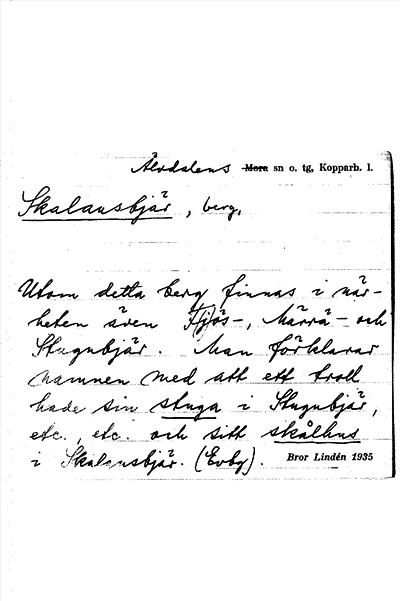 Älvdalens Mora sn o. tg, Kopparb. l.
Skalansbjär, berg,
Utom detta berg finnas i när-
heten även Fjös-, Märrä- och
Stugubjär. Man förklarar
namnen med att ett troll
hade sin stuga i Stugubjär,
etc., etc. och sitt skålhus
i Skalansbjär. (Evby).
Bror Lindén 1935